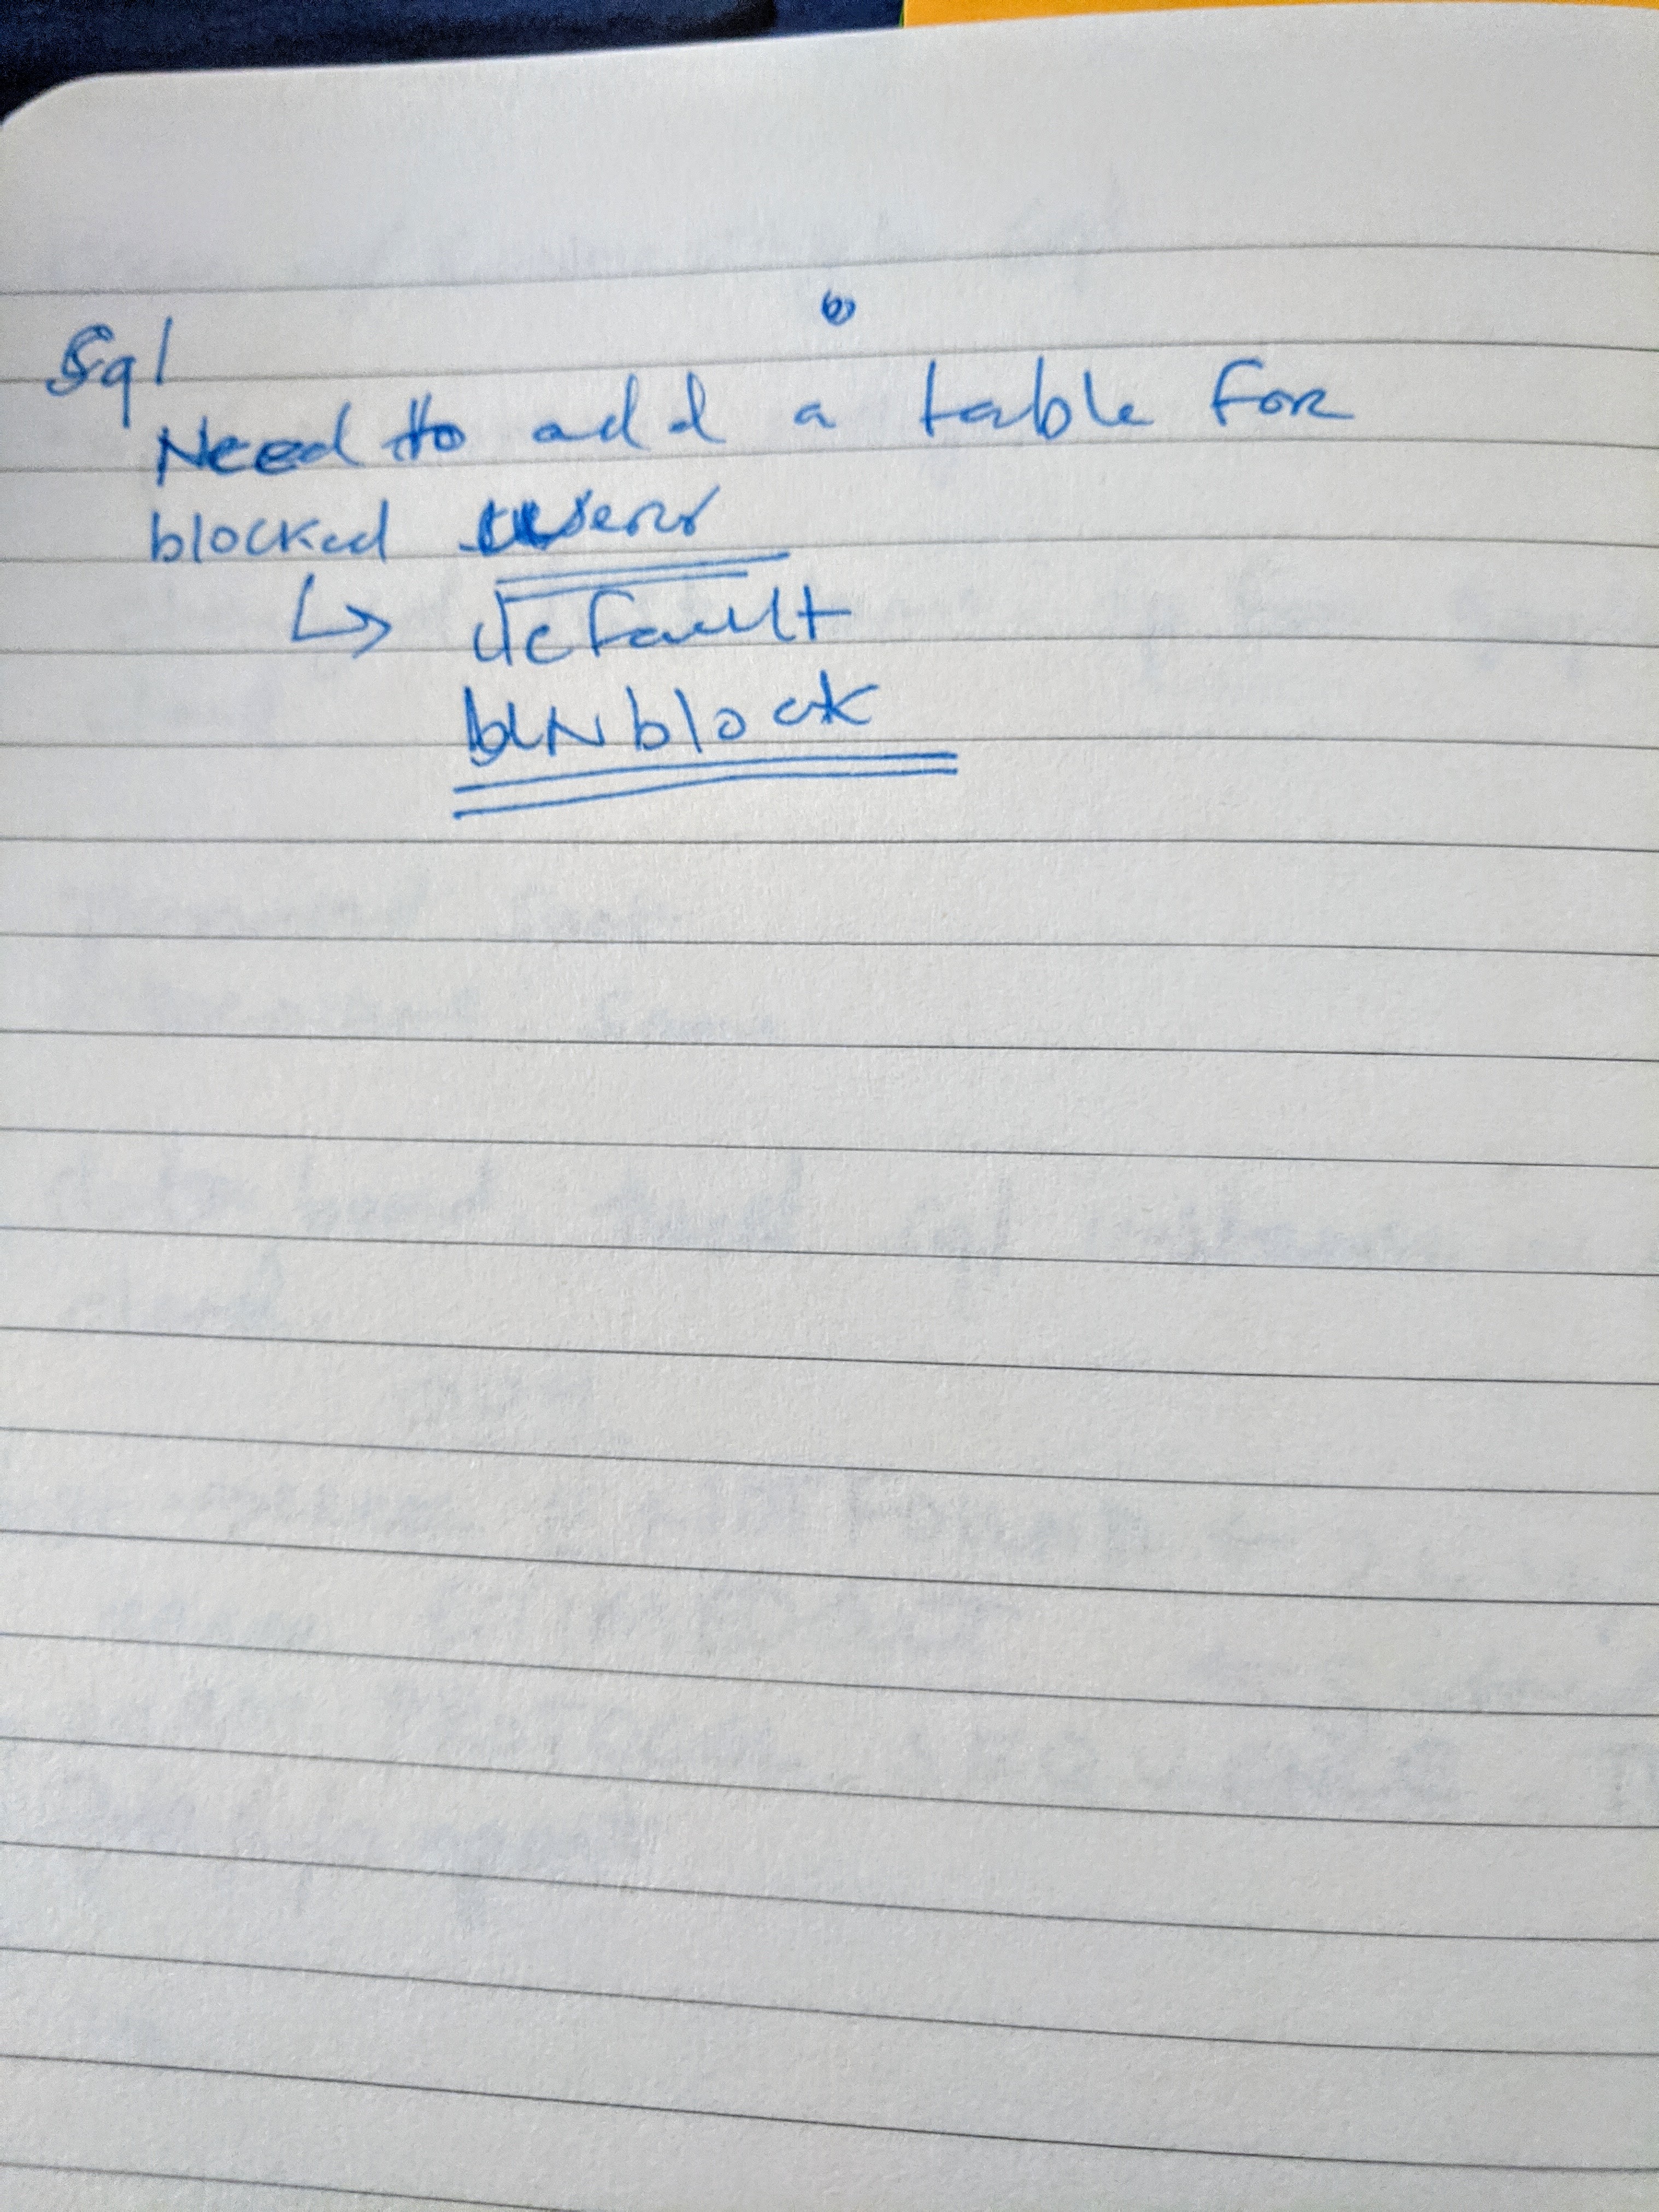 Sql
Need to add a table for
blocked users
↳ default
unblock